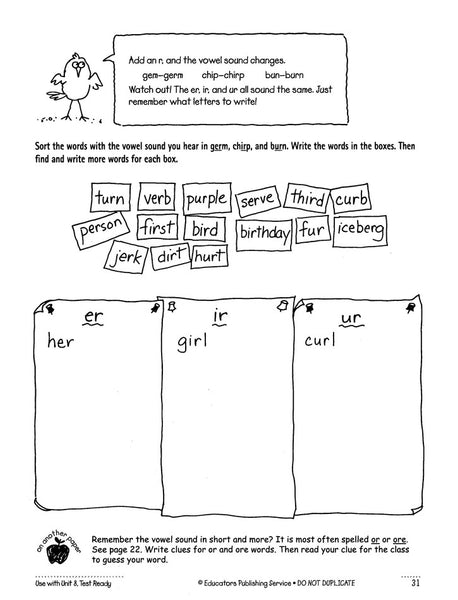 Add an r, and the vowel sound changes.
gem–germ chip–chirp ban–barn
Watch out! The er, ir, and ur all sound the same. Just
remember what letters to write!
Sort the words with the vowel sound you hear in germ, chirp, and burn. Write the words in the boxes. Then
find and write more words for each box.
turn verb purple serve third curb
person first bird birthday fur iceberg
jerk dirt hurt
er ir ur
her girl curl
on another paper
Remember the vowel sound in short and more? It is most often spelled or or ore.
See page 22. Write clues for or and ore words. Then read your clue for the class
to guess your word.
Use with Unit 8, Test Ready © Educators Publishing Service • DO NOT DUPLICATE 31